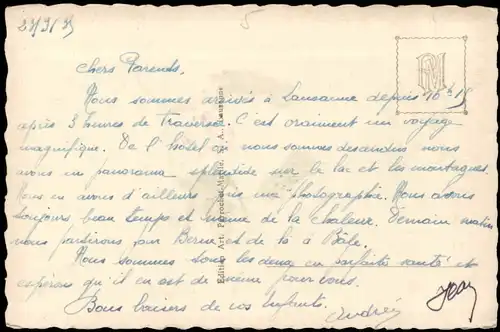 Chers Parents,
Nous sommes arrivés à Lausanne depuis 16h15
après 3 heures de traversée. C'est vraiment un voyage
magnifique. De l'hôtel où nous sommes descendus nous
avons un panorama splendide sur le lac et les montagnes.
Nous en avons d'ailleurs pris une photographie. Nous avons
toujours beau temps et même de la chaleur. Demain matin
nous partirons pour Berne et de là à Bâle.
Nous sommes tous les deux en parfaite santé et
espérons qu'il en est de même pour vous.
Bons baisers de vos enfants.
Andrée
Jean
Edition Art. Perrochet-Matile, S. A., Lausanne
5